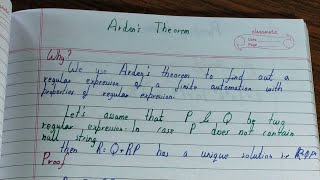 Arden's Theorem
classmate
Date
Page
Why?
We use Arden's theorem to find out a
regular expression of a finite automation with
properties of regular expression.
Let's assume that P & Q be two
regular expression. In case P does not contain
null string
then R = Q + RP has a unique solution i.e R = QP*
Proof